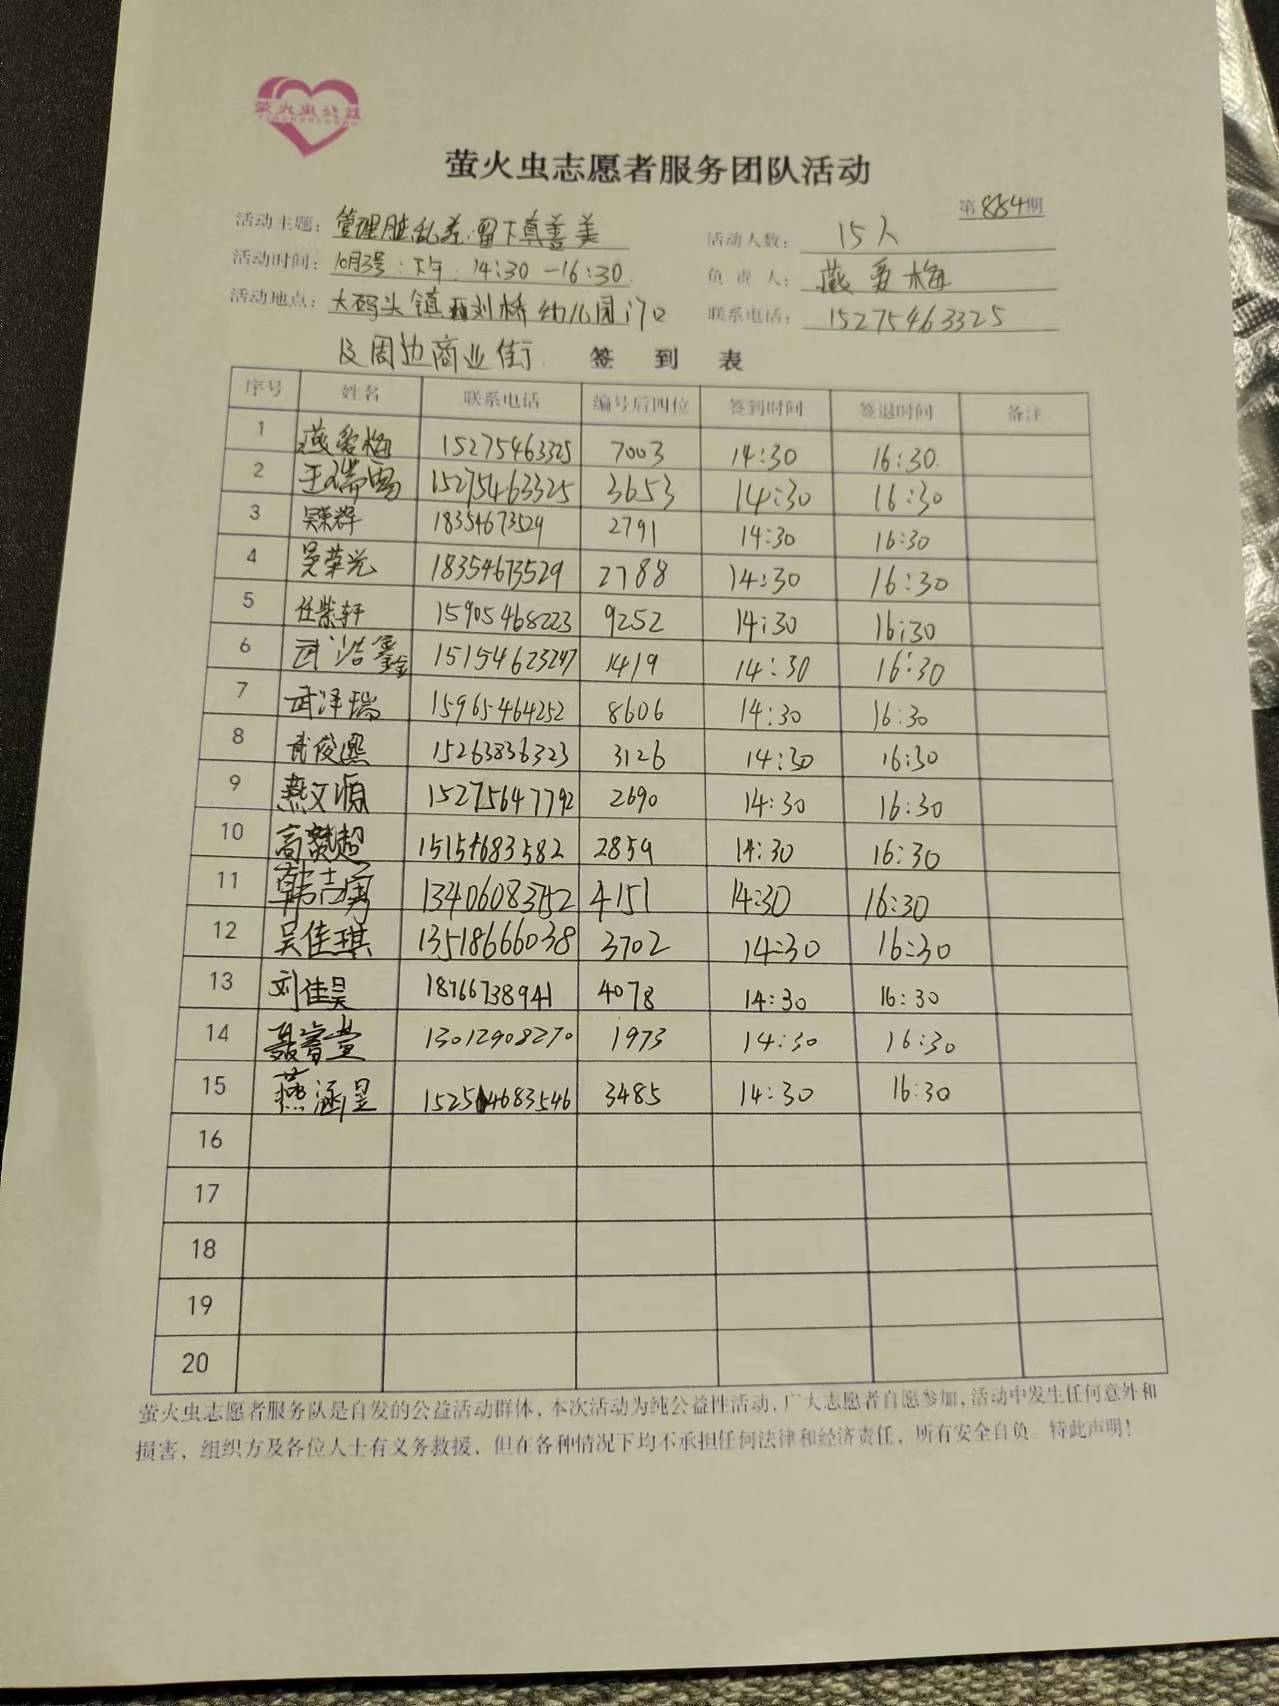 萤火虫公益
萤火虫志愿者服务团队活动
第884期
活动主题：管理脏乱差.留下真善美 活动人数：15人
活动时间：10月3号：下午：14:30-16:30 负责人：燕爱梅
活动地点：大码头镇西刘桥幼儿园门口 联系电话：15275463325
及周边商业街 签到表
序号 姓名 联系电话 编号后四位 签到时间 签退时间 备注
1 燕爱梅 15275463325 7003 14:30 16:30
2 王瑞 15275463325 3653 14:30 16:30
3 吴荣群 18354673529 2791 14:30 16:30
4 吴荣光 18354673529 2788 14:30 16:30
5 任紫轩 15905468223 9252 14:30 16:30
6 武浩鑫 15154623247 1419 14:30 16:30
7 武泽瑞 15965464252 8606 14:30 16:30
8 武俊熙 15263836323 3126 14:30 16:30
9 燕文源 15275647792 2690 14:30 16:30
10 高赞超 15154683582 2859 14:30 16:30
11 韩志勇 13406083752 4151 14:30 16:30
12 吴佳琪 13518666038 3702 14:30 16:30
13 刘佳昊 18766738941 4078 14:30 16:30
14 聂睿萱 13012908270 1973 14:30 16:30
15 燕涵昱 15254683546 3485 14:30 16:30
16
17
18
19
20
萤火虫志愿者服务队是自发的公益活动群体，本次活动为纯公益性活动，广大志愿者自愿参加，活动中发生任何意外和
损害，组织方及各位人士有义务救援，但在各种情况下均不承担任何法律和经济责任，所有安全自负。特此声明！